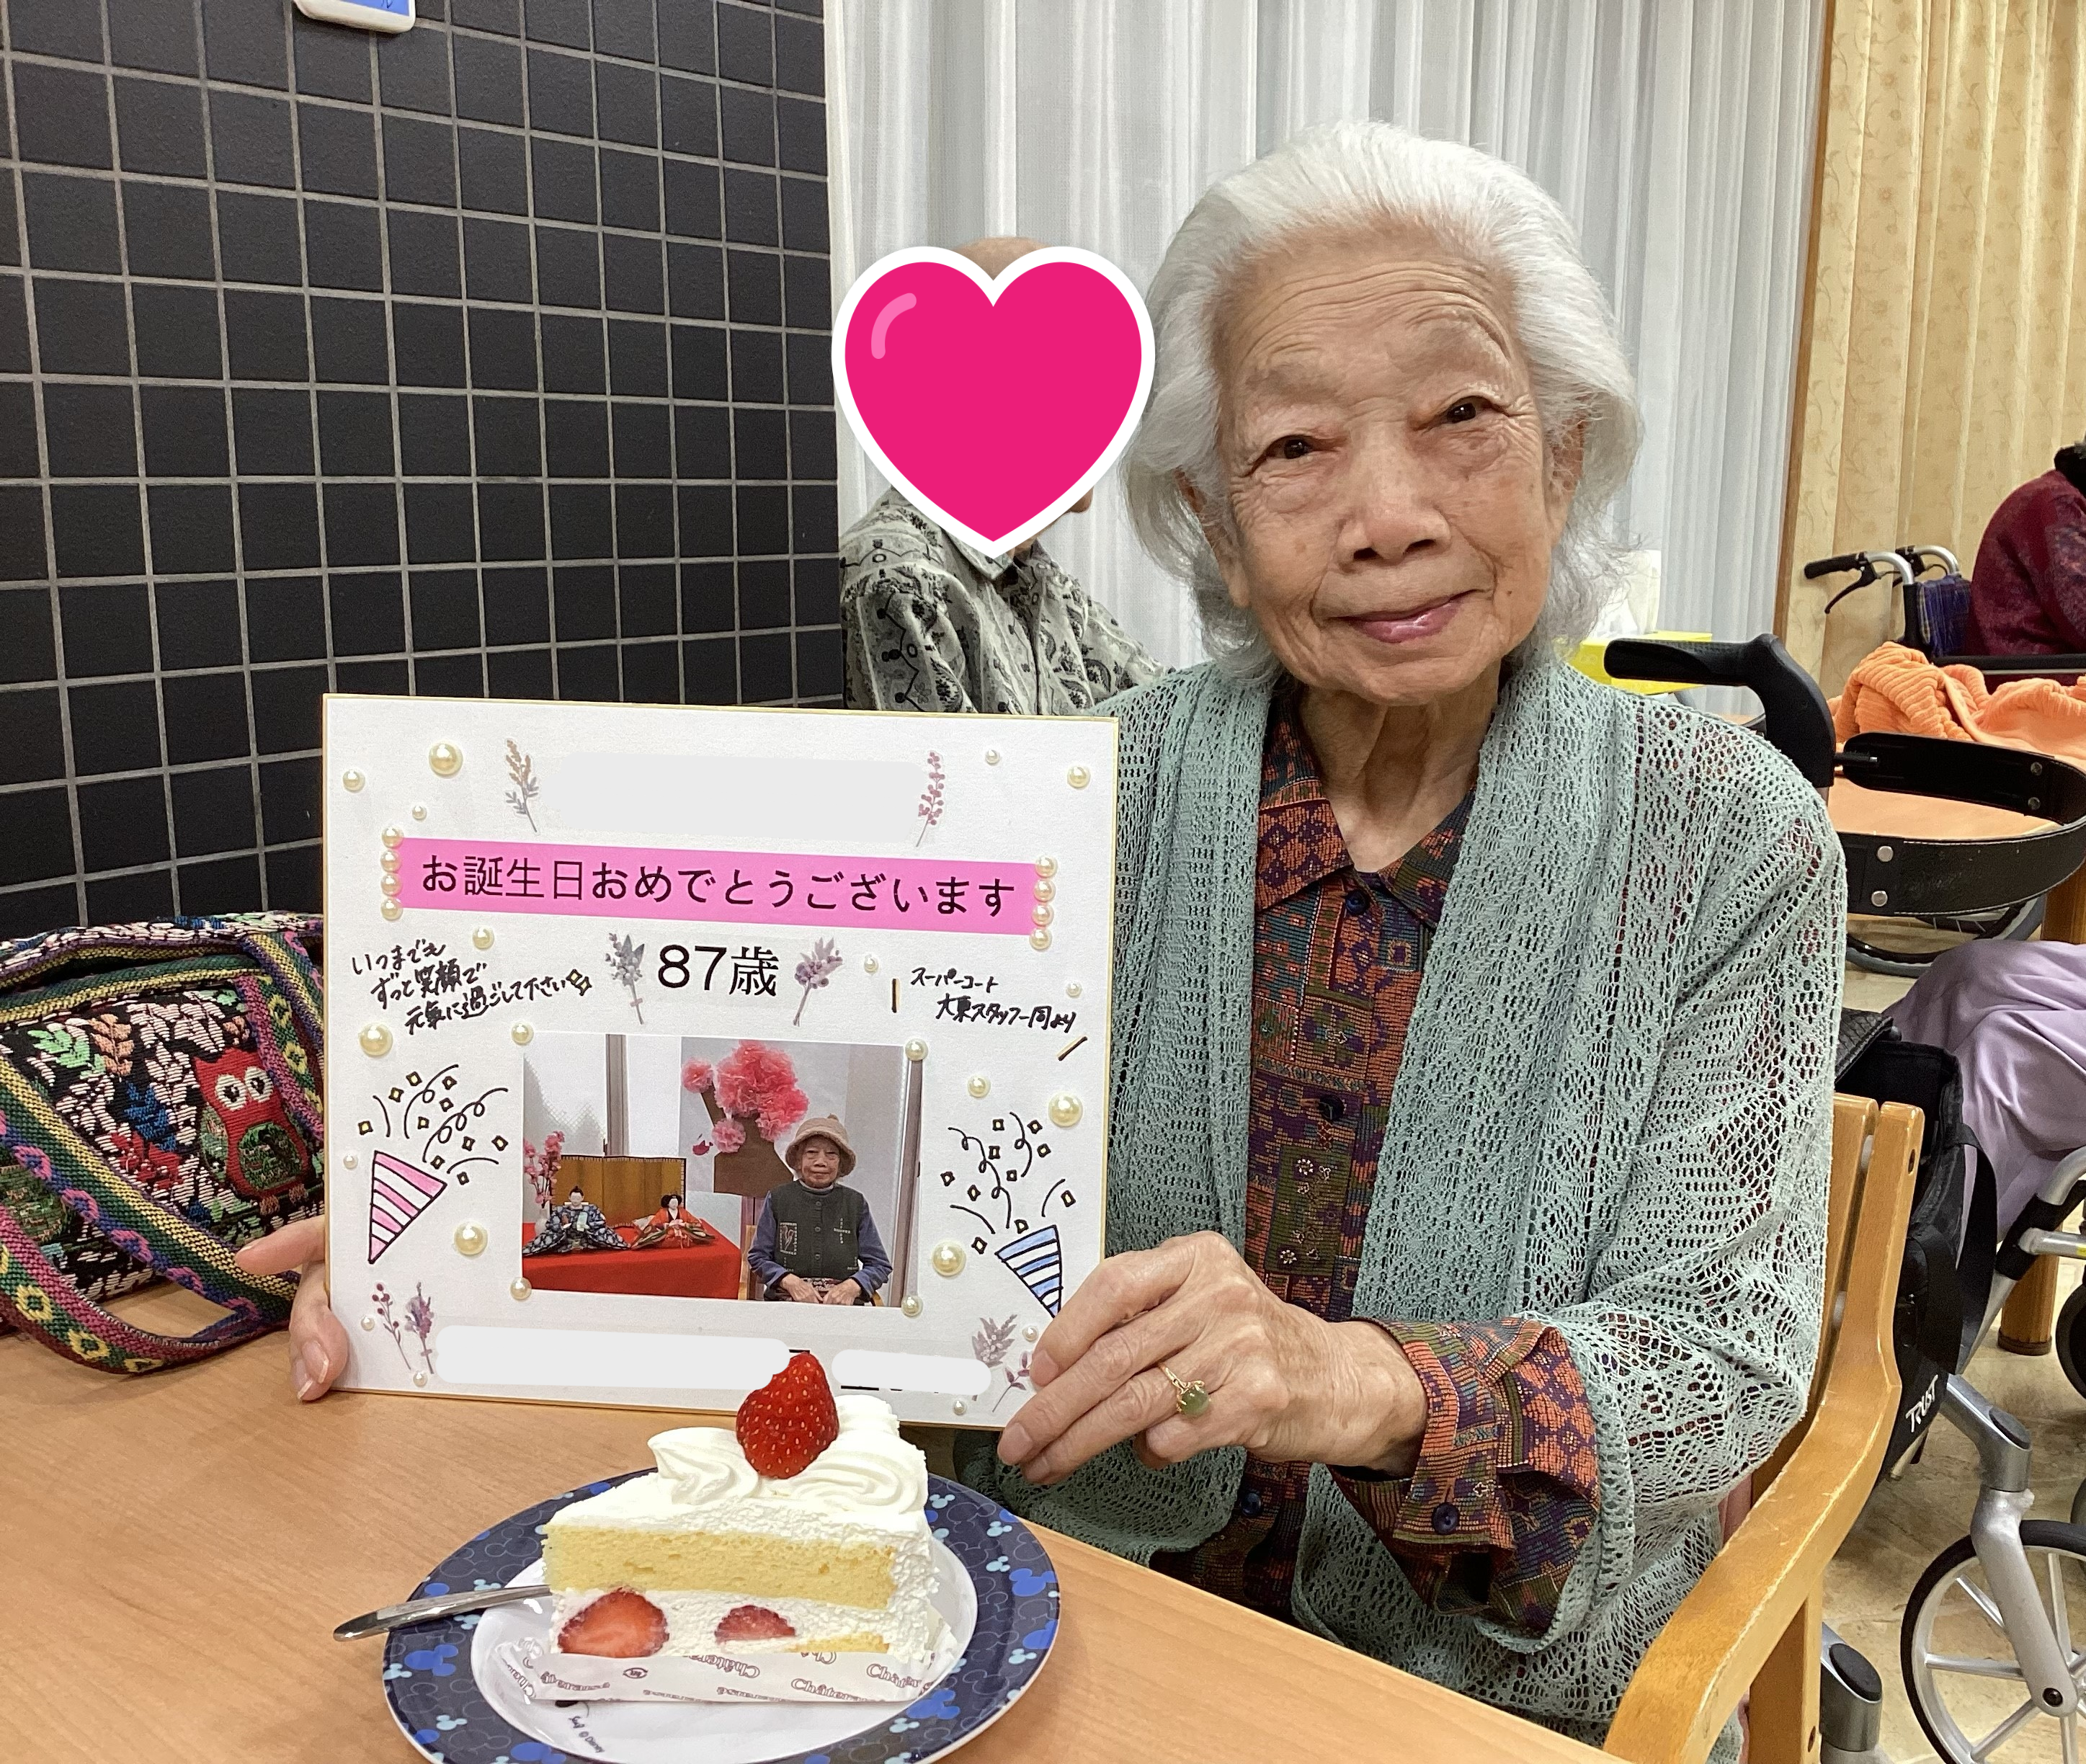 お誕生日おめでとうございます
87歳
いつまでも
ずっと笑顔で
元気に過ごして下さい
スーパーコート
大東スタッフ一同より
TRUST
Châteraisé
Châteraisé
Châteraisé
© Disney